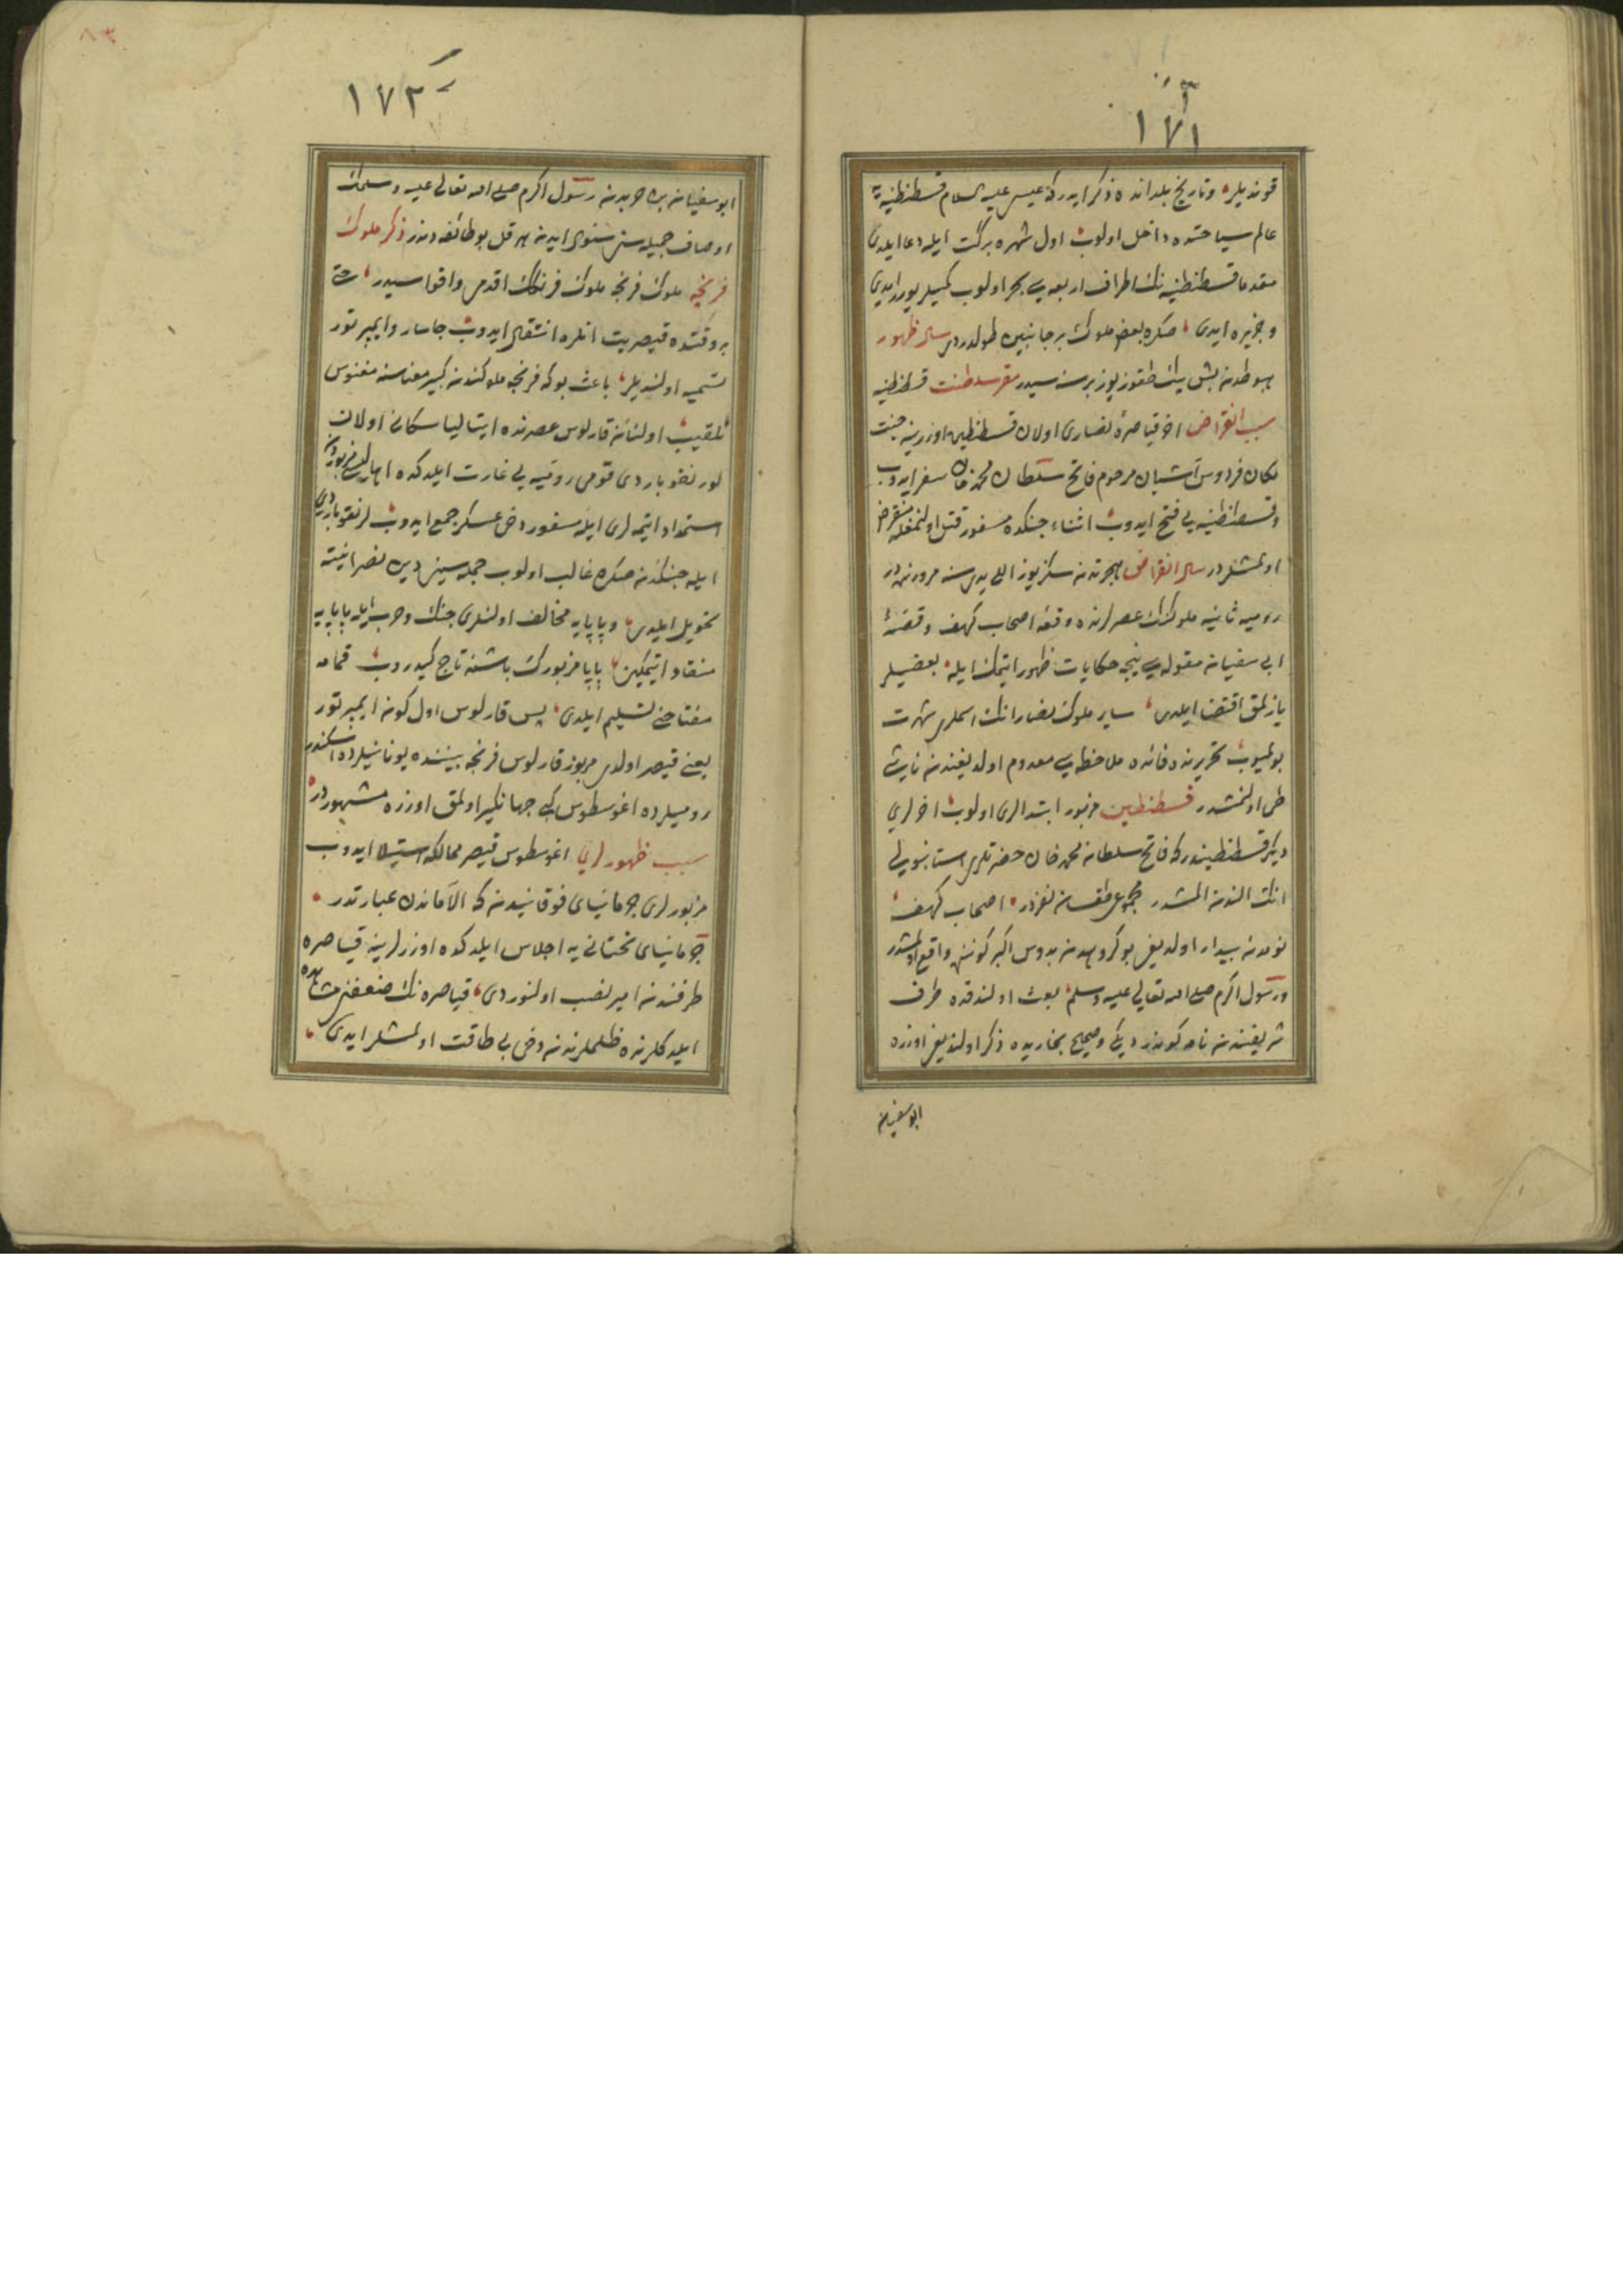 ١٧١
قوندیلر و تاریخ بلدانده ذکر ایدرکه عیسی علیه السلام قسطنطنیه یه
عالم سیاحتده داخل اولوب اول شهره برکت ایله دعا ایلدی
مقدما قسطنطنیه نك اطراف اربعه سی بحر اولوب کمیلر یورر ایدی
و جزیره ایدی صکره بعض ملوك بر جانبین طولدردی سال ظهور
هبوطدن بش بیك طقوز یوز بر سنه سیدر مقر سلطنت قسطنطنیه
سبب انقراض اخر قیاصرۀ نصاری اولان قسطنطین اوزرینه جنت
مکان فردوس آشیان مرحوم فاتح سلطان محمد خان سفر ایدوب
و قسطنطنیه یی فتح ایدوب اثناء جنکده مسفور قتل اولنمغله منقرض
اولمشلردر سال انقراض هجرتدن سکز یوز اللی یدی سنه مرورنده در
رومیه ثانیه ملوکنك عصرلرنده وقعۀ اصحاب کهف و قصۀ
ابی سفیان مقوله سی نیجه حکایات ظهور ایتمك ایله بعضیلر
یازلمق اقتضا ایلدی سایر ملوك نصارانك اسملری شهرت
بولمیوب تحریرنده فائده ملاحظه سی معدوم اولدیغندن ناشی
طی اولنمشدر قسطنطین مزبور ابتدالری اولوب اخرلری
دیکر قسطنطیندر که فاتح سلطان محمد خان حضرتلری استانبولی
انك الندن المشدر مجموعی طقسان نفردر اصحاب کهف
نومدن بیدار اولدیغی بو کروهدن بدوس اکبر کوننده واقع اولمشدر
و رسول اکرم صلی الله تعالی علیه وسلم بعث اولندقده طرف
شریفندن نامه کوندردیکی و صحیح بخاریده ذکر اولندیغی اوزره
ابو سفیان
١٧٢
ابو سفیان بن حربدن رسول اکرم صلی الله تعالی علیه وسلمك
اوصاف جمیله سنی سؤال ایدن هرقل بو طائفه دندر ذکر ملوك
فرنجه ملوك فرنجه ملوك فرنكك اقدم و اقواسیدر حتی
بر وقتده قیصریت انلره انتقال ایدوب جاسار و ایمپرتور
تسمیه اولندیلر باعث بو که فرنجه ملوکندن کبیر معناسنه مغنوس
تلقیب اولنان قارلوس عصرنده ایتالیا سکانی اولان
لونغوباردی قومی رومیه یی غارت ایلدکده اهالیسی مزبوردن
استمداد ایتمه لری ایله مسفور دخی عسکر جمع ایدوب لونغوباردی
ایله جنکدن صکره غالب اولوب جمله سینی دین نصرانیته
تحویل ایلدی و پاپایه مخالف اولنلری جنك و حرب ایله پاپایه
منقاد ایتمکین پاپا مزبورك باشنه تاج کیدروب قمامه
مفتاحنی تسلیم ایلدی پس قارلوس اول کوندن ایمپرتور
یعنی قیصر اولدی مزبور قارلوس فرنجه بیننده یونانیلرده اسکندر
رومیلرده اغوسطوس کبی جهانکیر اولمق اوزره مشهوردر
سبب ظهورلری اغوسطوس قیصر ممالکه استیلا ایدوب
مزبورلری جرمانیای فوقانیدن که الاماندن عبارتدر
جرمانیای تحتانی یه اجلاس ایلدکده اوزرلرینه قیاصره
طرفندن امیر نصب اولنوردی قیاصره نك ضعفنی مشاهده
ایلدکلرنده ظلملرندن دخی بی طاقت اولمشلر ایدی